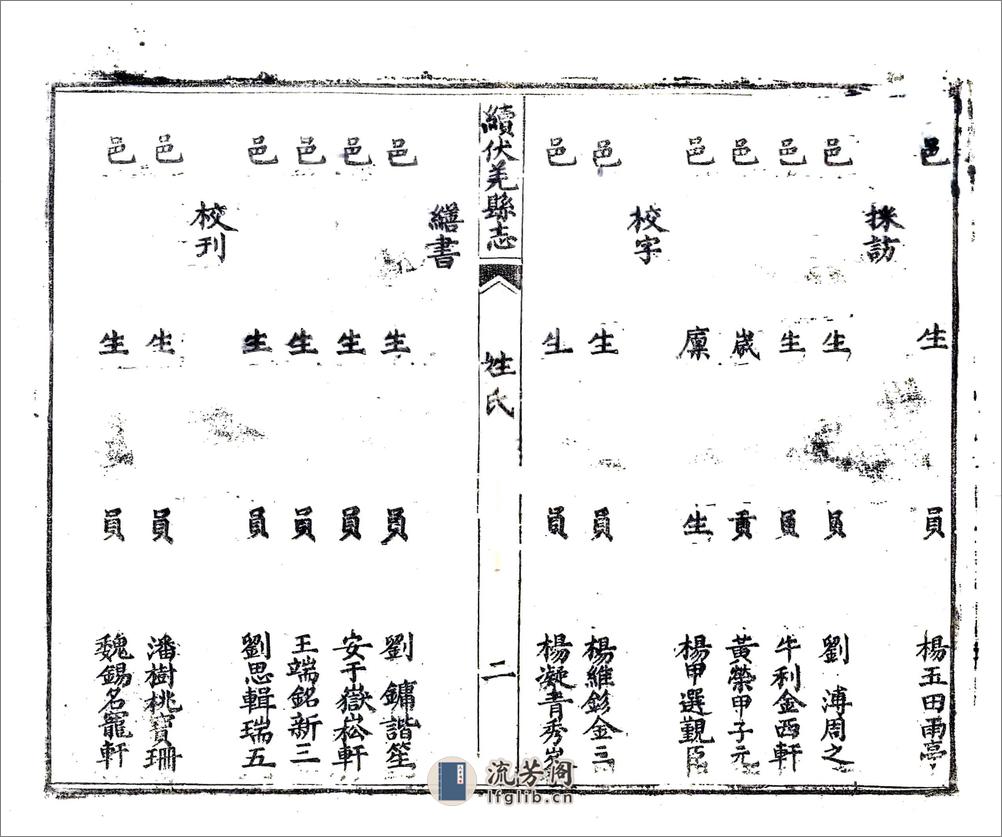 邑生員楊玉田雨亭
採訪
邑生員劉溥周之
邑生員牛利金西軒
邑歲貢黃榮甲子元
邑廩生楊甲選覲臣
校字
邑生員楊維鉁金三
邑生員楊凝青秀
續伏羌縣志
姓氏
二
繕書
邑生員劉鏞諧笙
邑生員安于嶽崧軒
邑生員王端銘新三
邑生員劉思輯瑞五
校刊
邑生員潘樹桃寶珊
邑生員魏錫名寵軒
流芳阁
lfglib.cn